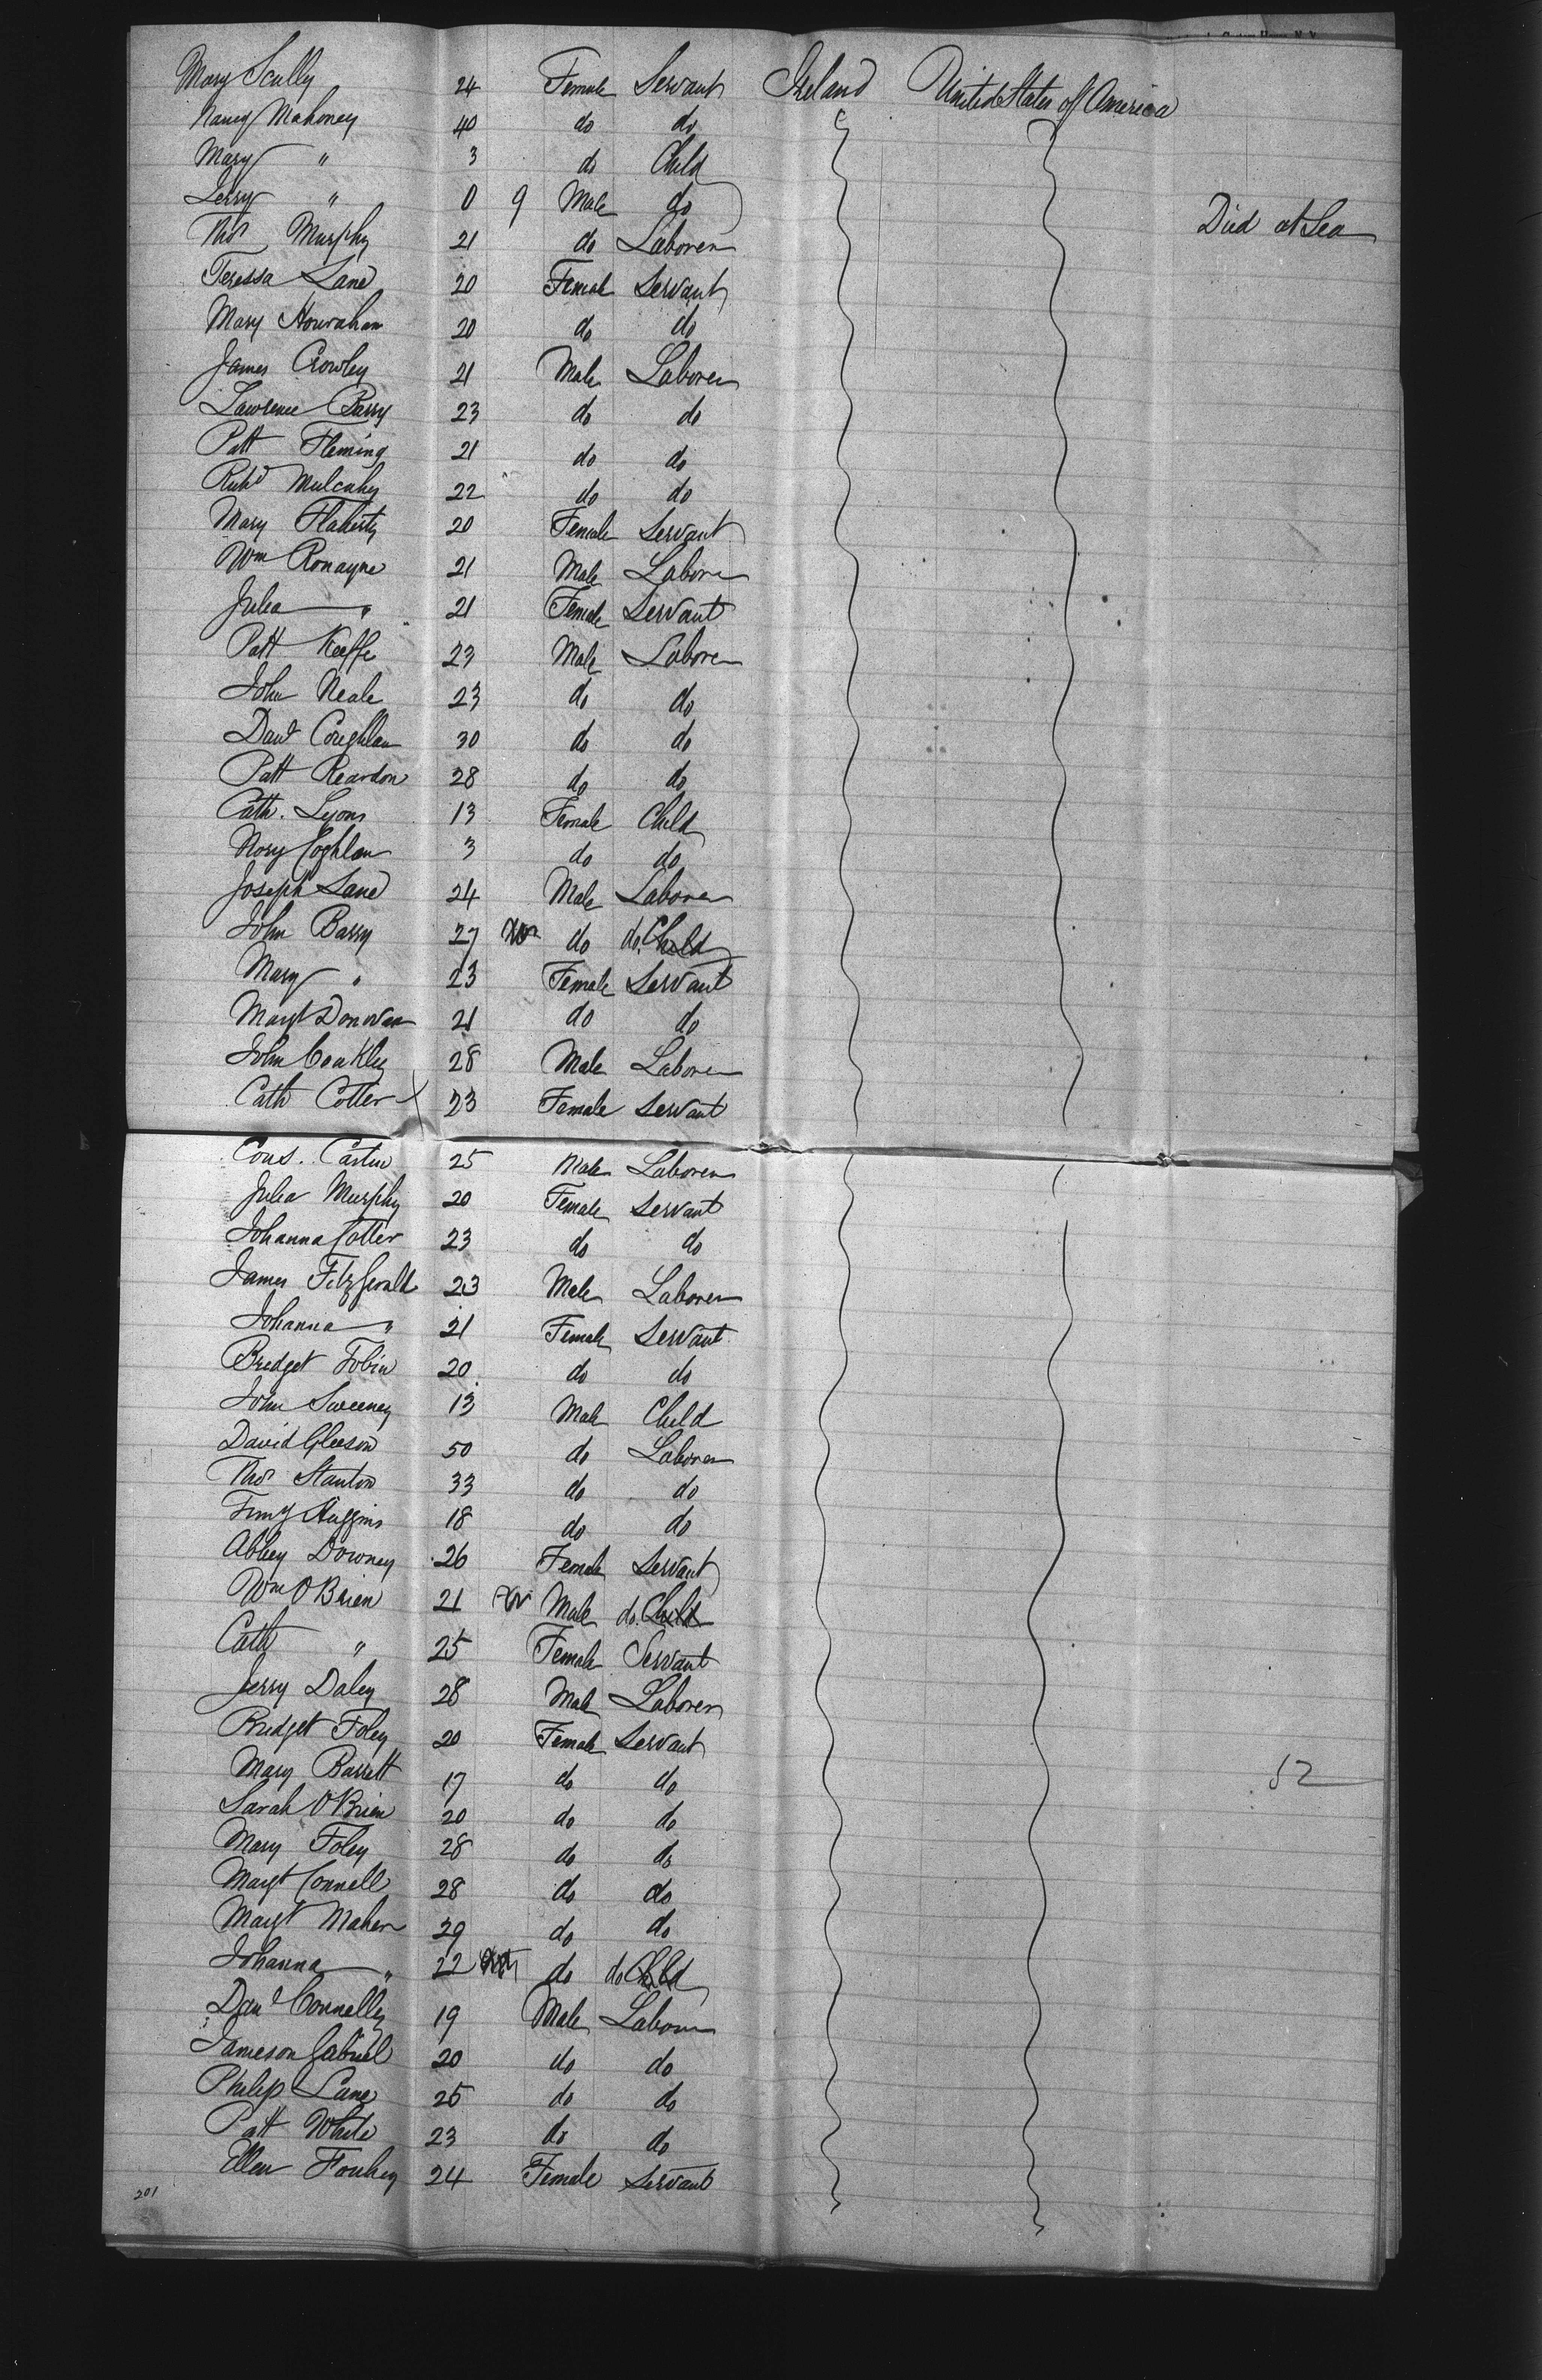 Mary Scully 24 Female Servant Ireland United States of America
Nancy Mahoney 40 do do
Mary " 3 do Child
Jerry " 0 9 Male do Died at Sea
Thos Murphy 21 do Laborer
Teressa Lane 20 Female Servant
Mary Hourahan 20 do do
James Crowley 21 Male Laborer
Lawrence Barry 23 do do
Patt Fleming 21 do do
Richd Mulcahy 22 do do
Mary Flaherty 20 Female Servant
Wm Ronayne 21 Male Laborer
Julia " 21 Female Servant
Patt Keeffe 23 Male Laborer
John Neale 23 do do
Danl Coughlan 30 do do
Patt Reardon 28 do do
Cath. Lyons 13 Female Child
Nory Coghlan 3 do do
Joseph Lane 24 Male Laborer
John Barry 27 do do. Child
Mary " 23 Female Servant
Margt Donovan 21 do do
John Coakley 28 Male Laborer
Cath Cotter 23 Female Servant
Cons. 25 Male Laborer
Julia Murphy 20 Female Servant
Johanna Cotter 23 do do
James Fitzgerald 23 Male Laborer
Johanna " 21 Female Servant
Bridget Tobin 20 do do
John Sweeney 13 Male Child
David Gleeson 50 do Laborer
Thos Stanton 33 do do
Timy Huggins 18 do do
Abbey Downey 26 Female Servant
Wm O'Brien 21 Male do. Child
Cath " 25 Female Servant
Jerry Daley 28 Male Laborer
Bridget Foley 20 Female Servant
Mary Barrett 17 do do 52
Sarah O'Brien 20 do do
Mary Foley 28 do do
Margt Connell 28 do do
Margt Maher 29 do do
Johanna " 22 do do Child
Danl Connelly 19 Male Laborer
Jameson Gabriel 20 do do
Philip Lane 25 do do
Patt White 23 do do
Ellen Fouhey 24 Female Servant
201